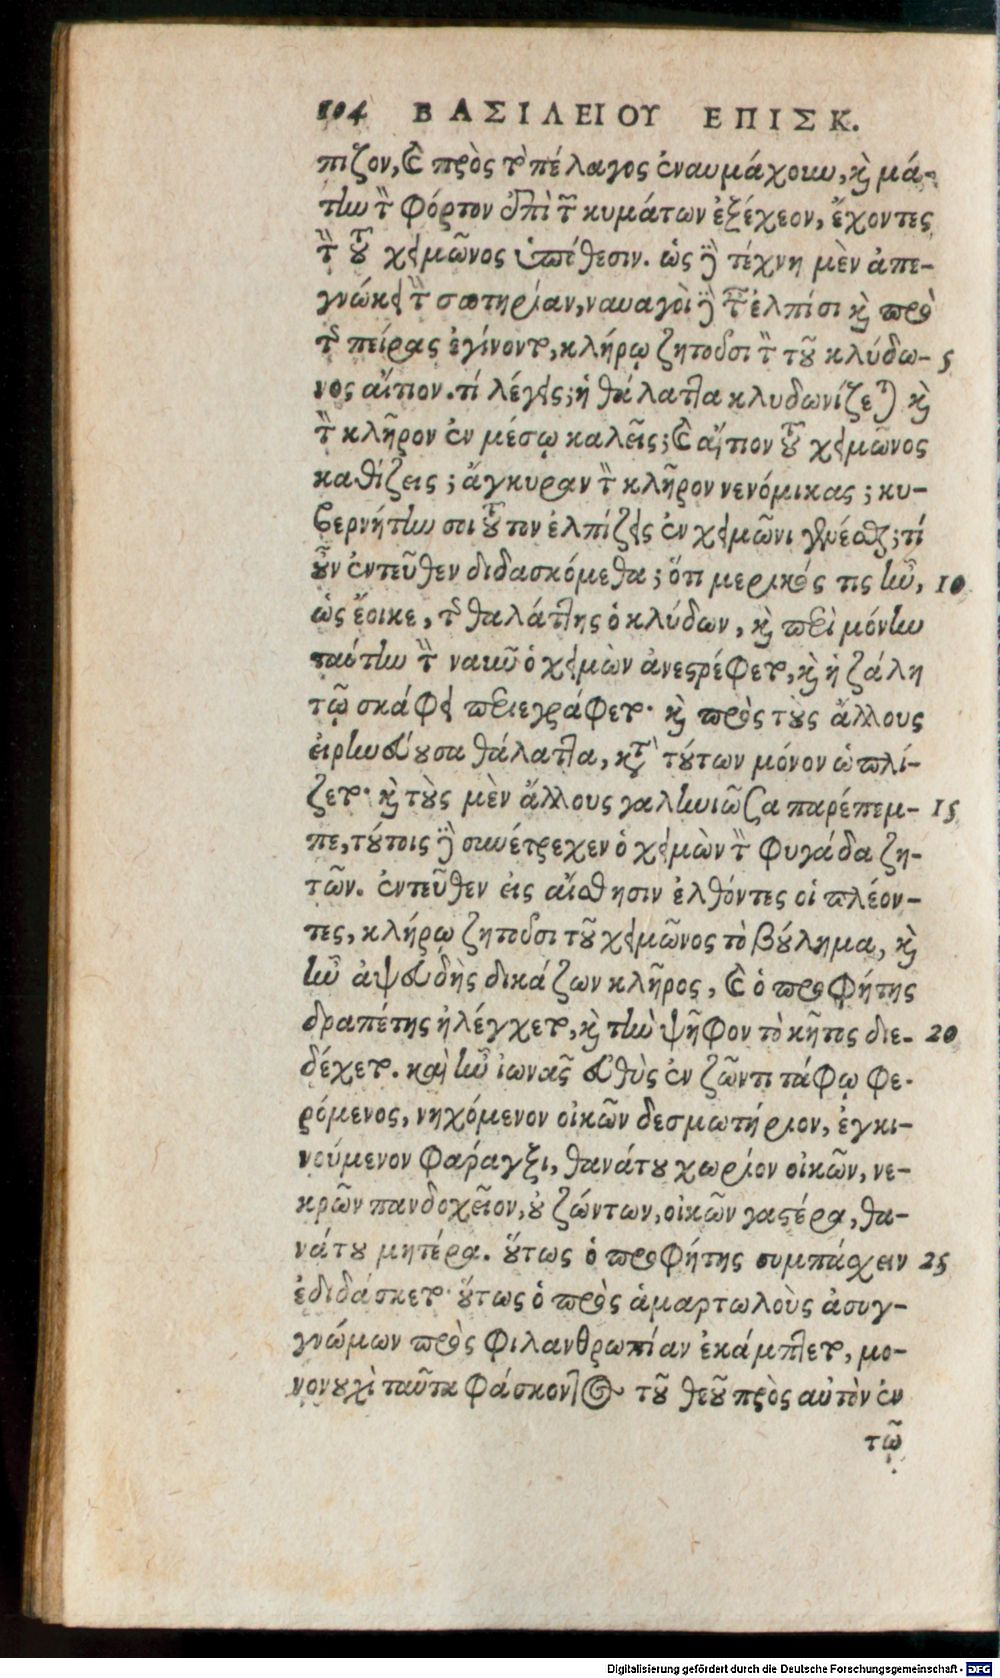 104 ΒΑΣΙΛΕΙΟΥ ΕΠΙΣΚ.
πιζον, καὶ πρὸς τὸ πέλαγος ἐναυμάχουν, καὶ μά-
την τὸν φόρτον ἐπὶ τῶν κυμάτων ἐξέχεον, ἔχοντες
τὴν τοῦ χειμῶνος ὑπόθεσιν. ὡς δὲ τέχνη μὲν ἀπε-
γνώκει τὴν σωτηρίαν, ναυαγοὶ δὲ ταῖς ἐλπίσι καὶ πρὸ
τῆς πείρας ἐγίνοντο, κλήρῳ ζητοῦσι τὸν τοῦ κλύδω- 5
νος αἴτιον. τί λέγεις; ἡ θάλαττα κλυδωνίζεται καὶ
τὸν κλῆρον ἐν μέσῳ καλεῖς; καὶ αἴτιον τοῦ χειμῶνος
καθίζεις; ἄγκυραν τὸν κλῆρον νενόμικας; κυ-
βερνήτην σοι τοῦτον ἐλπίζεις ἐν χειμῶνι γενέσθαι; τί
οὖν ἐντεῦθεν διδασκόμεθα; ὅτι μερικός τις ἦν, 10
ὡς ἔοικε, τῆς θαλάττης ὁ κλύδων, καὶ περὶ μόνην
ταύτην τὴν ναῦν ὁ χειμὼν ἀνεστρέφετο, καὶ ἡ ζάλη
τῷ σκάφει περιεγράφετο· καὶ πρὸς τοὺς ἄλλους
εἰρηνεύουσα θάλαττα, κατὰ τούτων μόνον ὡπλί-
ζετο· καὶ τοὺς μὲν ἄλλους γαληνιῶσα παρέπεμ- 15
πε, τούτοις δὲ συνέτρεχεν ὁ χειμὼν τὸν φυγάδα ζη-
τῶν. ἐντεῦθεν εἰς αἴσθησιν ἐλθόντες οἱ πλέον-
τες, κλήρῳ ζητοῦσι τοῦ χειμῶνος τὸ βούλημα, καὶ
ἦν ἀψευδὴς δικάζων κλῆρος, καὶ ὁ προφήτης
δραπέτης ἠλέγχετο, καὶ τὴν ψῆφον τὸ κῆτος διε- 20
δέχετο. καὶ ἦν ἰωνᾶς εὐθὺς ἐν ζῶντι τάφῳ φε-
ρόμενος, νηχόμενον οἰκῶν δεσμωτήριον, ἐγκι-
νούμενον φάραγξι, θανάτου χωρίον οἰκῶν, νε-
κρῶν πανδοχεῖον, οὐ ζώντων, οἰκῶν γαστέρα, θα-
νάτου μητέρα. οὕτως ὁ προφήτης συμπάσχειν 25
ἐδιδάσκετο· οὕτως ὁ πρὸς ἁμαρτωλοὺς ἀσυγ-
γνώμων πρὸς φιλανθρωπίαν ἐκάμπτετο, μο-
νονουχὶ ταῦτα φάσκοντος τοῦ θεοῦ πρὸς αὐτὸν ἐν
τῷ
Digitalisierung gefördert durch die Deutsche Forschungsgemeinschaft - DFG